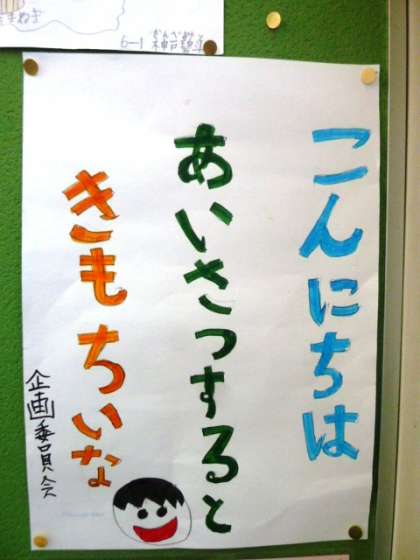 こんにちは
あいさつすると
きもちいな
企画委員会
たまねぎ
6-1